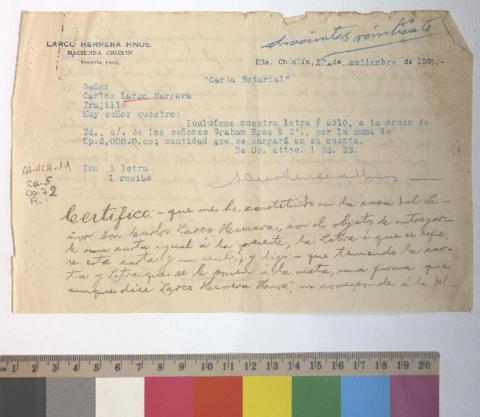 LARCO HERRERA HNOS.
HACIENDA CHICLIN
Trujillo Perú.
doscientos veintisiete
Hda. Chiclín, 1º de setiembre de 192
"Carta Notarial"
Señor
Carlos Larco Herrera
Trujillo
Muy señor nuestro:
Incluimos nuestra letra # 6910, a la orden de
Ud., c/. de los señores Graham Rowe & Cº., por la suma de
Lp.5,000.0.00; cantidad que se cargará en su cuenta.
De Ud. attos. i SS. SS.
Inc: 1 letra
1 recibo
Larco Herrera Hnos
AA-HCH-1.1
Ca. 5
Co. 72
F.
Certifico:- que me he constituido en la casa del Se-
ñor Don Carlos Larco Herrera, con el objeto de entregar-
le una carta igual á la presente, la letra á que se refie-
re esta carta y un recibo; y dijo - que teniendo la car-
ta y letra que se le ponen á la vista, una firma que
aunque dice Larco Herrera Hnos", no corresponde á la del
1 2 3 4 5 6 7 8 9 10 11 12 13 14 15 16 17 18 19 20